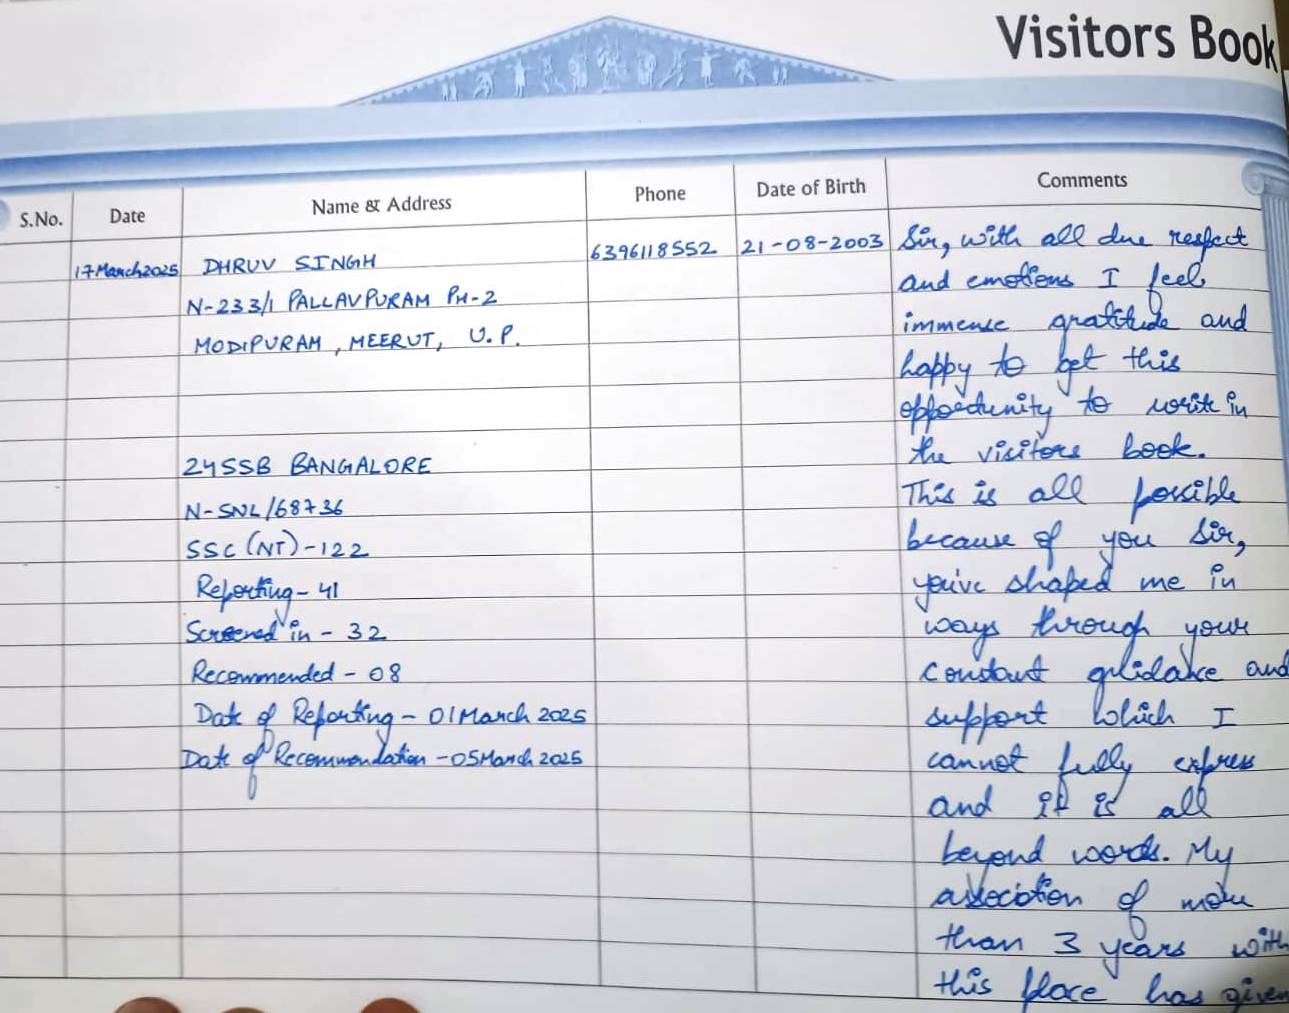 Visitors Book
S.No.
Date
Name & Address
Phone
Date of Birth
Comments
17 March 2025
DHRUV SINGH
N-233/1 PALLAVPURAM PH-2
MODIPURAM, MEERUT, U.P.
24 SSB BANGALORE
N-SNL/68736
SSC (NT) - 122
Reporting - 41
Screened in - 32
Recommended - 08
Date of Reporting - 01 March 2025
Date of Recommendation - 05 March 2025
6396118552
21-08-2003
Sir, with all due respect
and emotions I feel
immense gratitude and
happy to get this
opportunity to write in
the visitors book.
This is all possible
because of you Sir,
you've shaped me in
ways through your
constant guidance and
support which I
cannot fully express
and it is all
beyond words. My
association of more
than 3 years with
this place has given